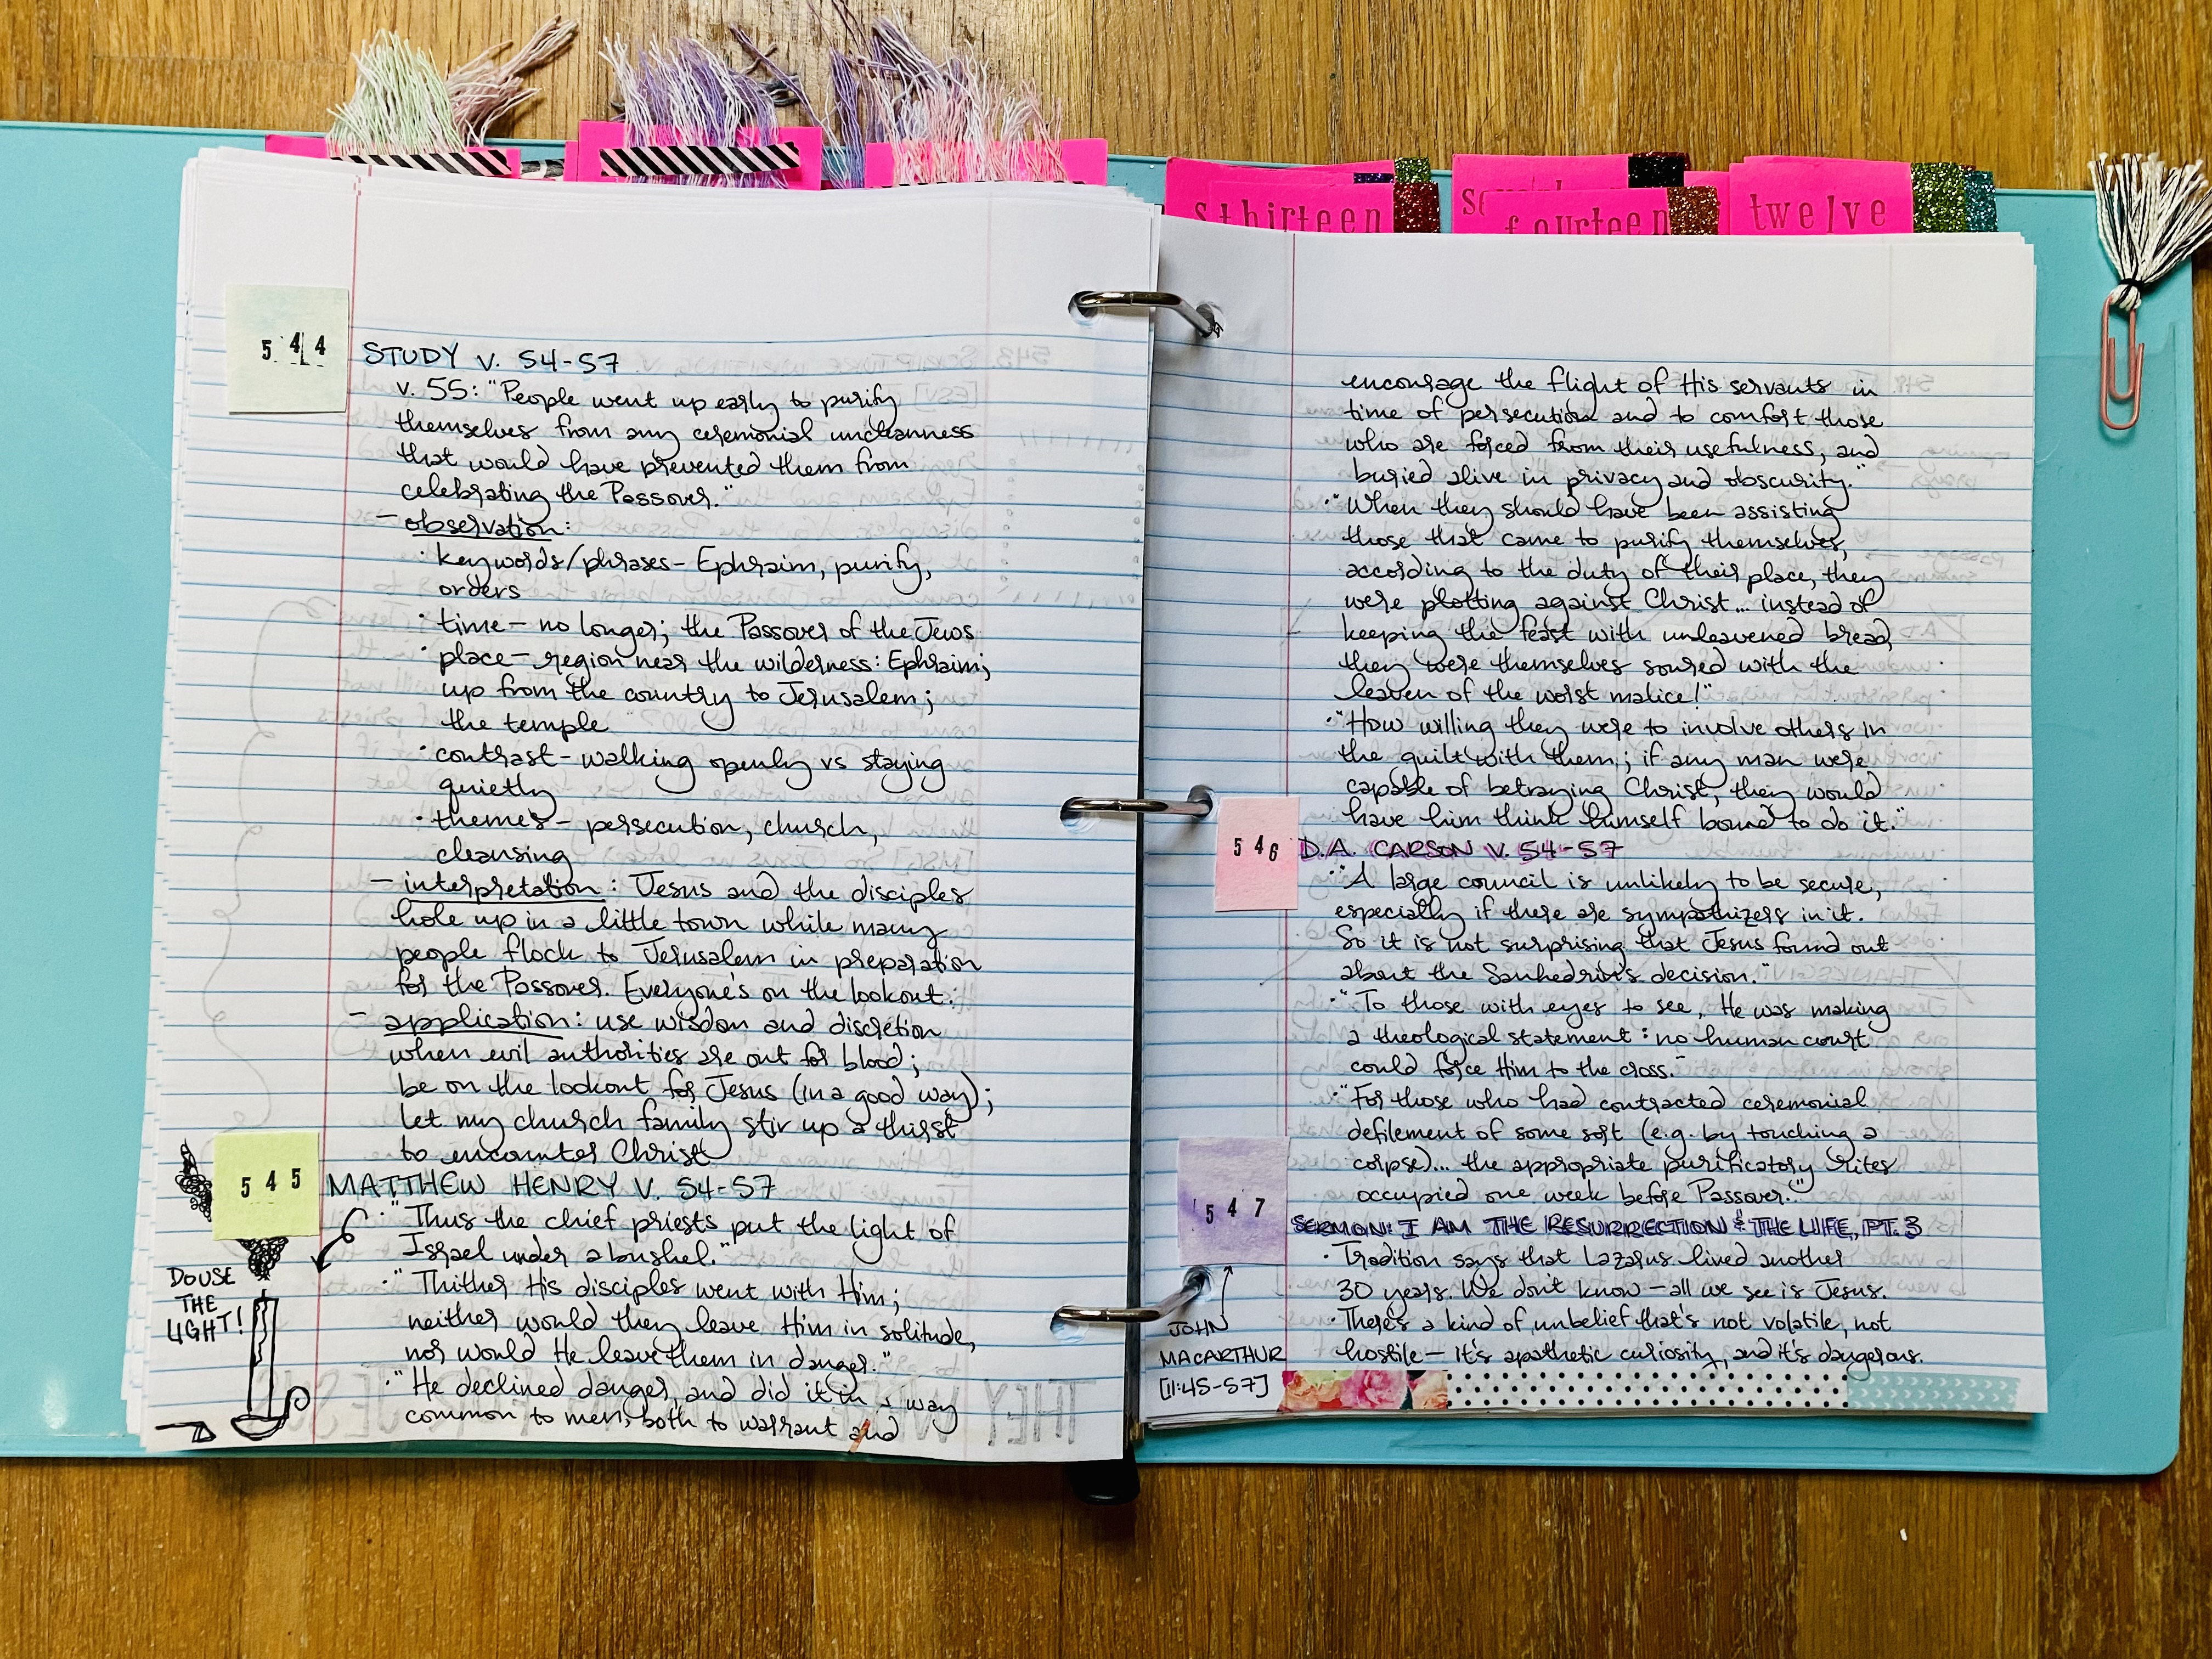 sthirteen
fourteen
twelve
544
STUDY V. 54-57
v. 55: "People went up early to purify
themselves from any ceremonial uncleanness
that would have prevented them from
celebrating the Passover."
- observation:
· keywords/phrases- Ephraim, purify,
orders
· time - no longer; the Passover of the Jews
· place - region near the wilderness: Ephraim;
up from the country to Jerusalem;
the temple
· contrast - walking openly vs staying
quietly
· themes - persecution, church,
cleansing
- interpretation: Jesus and the disciples
hole up in a little town while many
people flock to Jerusalem in preparation
for the Passover. Everyone's on the lookout.
- application: use wisdom and discretion
when evil authorities are out for blood;
be on the lookout for Jesus (in a good way);
let my church family stir up a thirst
to encounter Christ
545
MATTHEW HENRY V. 54-57
· "Thus the chief priests put the light of
Israel under a bushel."
· "Thither His disciples went with Him;
neither would they leave Him in solitude,
nor would He leave them in danger."
· "He declined danger, and did it in a way
common to men, both to warrant and
DOUSE
THE
LIGHT!
encourage the flight of His servants in
time of persecution and to comfort those
who are forced from their usefulness, and
buried alive in privacy and obscurity."
· "When they should have been assisting
those that came to purify themselves,
according to the duty of their place, they
were plotting against Christ... instead of
keeping the feast with unleavened bread,
they were themselves soured with the
leaven of the worst malice!"
· "How willing they were to involve others in
the guilt with them; if any man were
capable of betraying Christ, they would
have him think himself bound to do it."
546
D.A. CARSON V. 54-57
· "A large council is unlikely to be secure,
especially if there are sympathizers in it.
So it is not surprising that Jesus found out
about the Sanhedrin's decision."
· "To those with eyes to see, He was making
a theological statement: no human court
could force Him to the cross."
· "For those who had contracted ceremonial
defilement of some sort (e.g. by touching a
corpse)... the appropriate purificatory rites
occupied one week before Passover."
547
SERMON: I AM THE RESURRECTION & THE LIFE, PT. 3
· Tradition says that Lazarus lived another
30 years. We don't know - all we see is Jesus.
· There's a kind of unbelief that's not volatile, not
hostile - it's apathetic curiosity, and it's dangerous.
JOHN
MACARTHUR
[11:45-57]